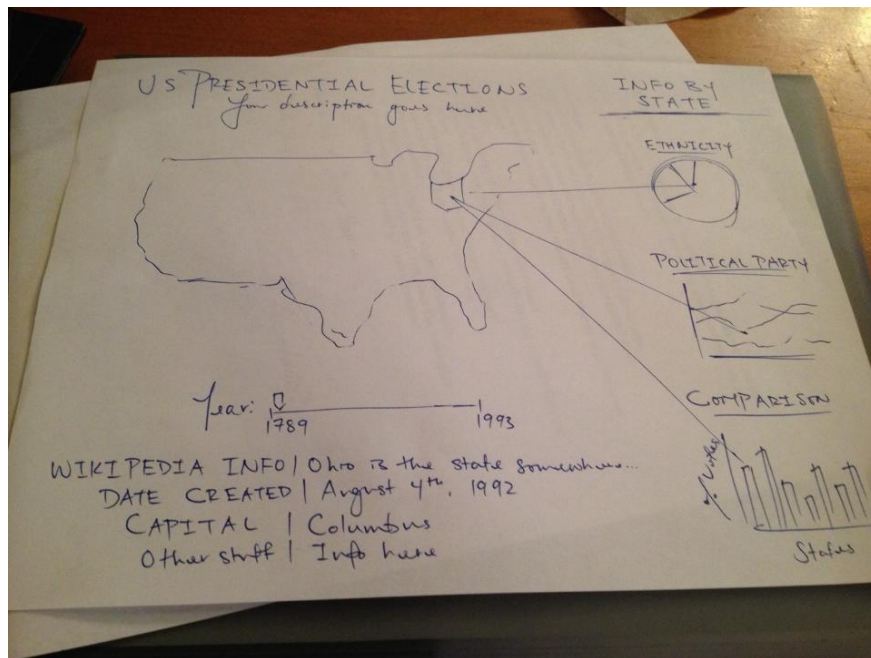 US PRESIDENTIAL ELECTIONS
Your description goes here
INFO BY
STATE
ETHNICITY
POLITICAL PARTY
COMPARISON
% Votes
States
Year:
1789
1993
WIKIPEDIA INFO | Ohio is the state somewhere...
DATE CREATED | August 4th, 1992
CAPITAL | Columbus
Other stuff | Info here